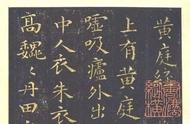 黄庭經
上有黄庭
嘘吸廬外出
中人衣朱衣
高巍々丹田